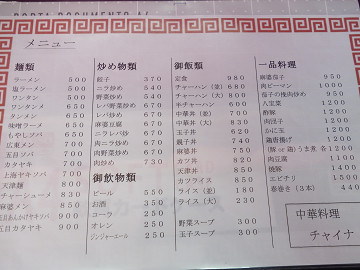 メニュー
麺類
ラーメン 500
塩ラーメン 500
ワンタン 500
ワンタンメン 650
タンメン 650
味噌ラーメン 650
もやしソバ 650
広東メン 700
五目ソバ 700
ヤキソバ 700
上海ヤキソバ 700
天津麺 800
チャーシューメン 800
麻婆メン 850
五目あんかけヤキソバ
五目カタヤキ 900
炒め物類
餃子 370
ニラ炒め 540
野菜炒め 540
レバ野菜炒め 670
レバ炒め 670
麻婆豆腐 670
ニラレバ炒め 670
肉ニラ炒め 670
肉野菜炒め 670
肉炒め 730
御飲物類
ビール 550
お酒 350
コーラ 250
オレンジ 250
ジンジャーエール 250
御飯類
定食 980
チャーハン(並) 680
チャーハン(大) 800
半チャーハン 600
中華丼(並) 700
中華丼(大) 830
玉子丼 630
親子丼 700
麻婆丼 750
カツ丼 820
天津丼 850
カツライス 850
ライス(並) 180
ライス(大) 230
野菜スープ 300
玉子スープ 300
一品料理
麻婆茄子 950
肉ピーマン
茄子の挽肉炒め
八宝菜 1200
酢豚 1200
肉団子 1200
かに玉 1200
鶏唐揚げ 1200
肉豆腐 1150
焼豚 1150
エビチリ 1500
春巻き(3本) 440
中華料理
チャイナ